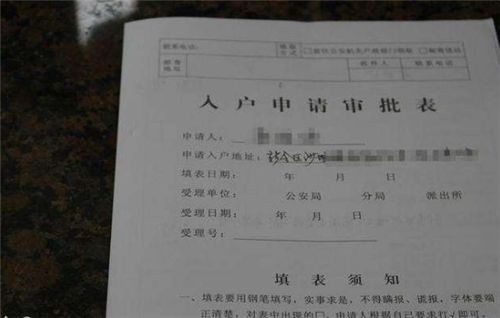 联系电话:
领取方式 □前往公安机关户政部门领取 □邮寄送达
邮寄地址 收件人 联系电话
入户申请审批表
申请人:
申请入户地址:
填表日期: 年 月 日
受理单位: 公安局 分局 派出所
受理日期: 年 月 日
受理号:
填表须知
一、填表要用钢笔填写，实事求是，不得瞒报、谎报，字体要端
正清楚；对表中出现的□，申请人根据自己要求打√即可。